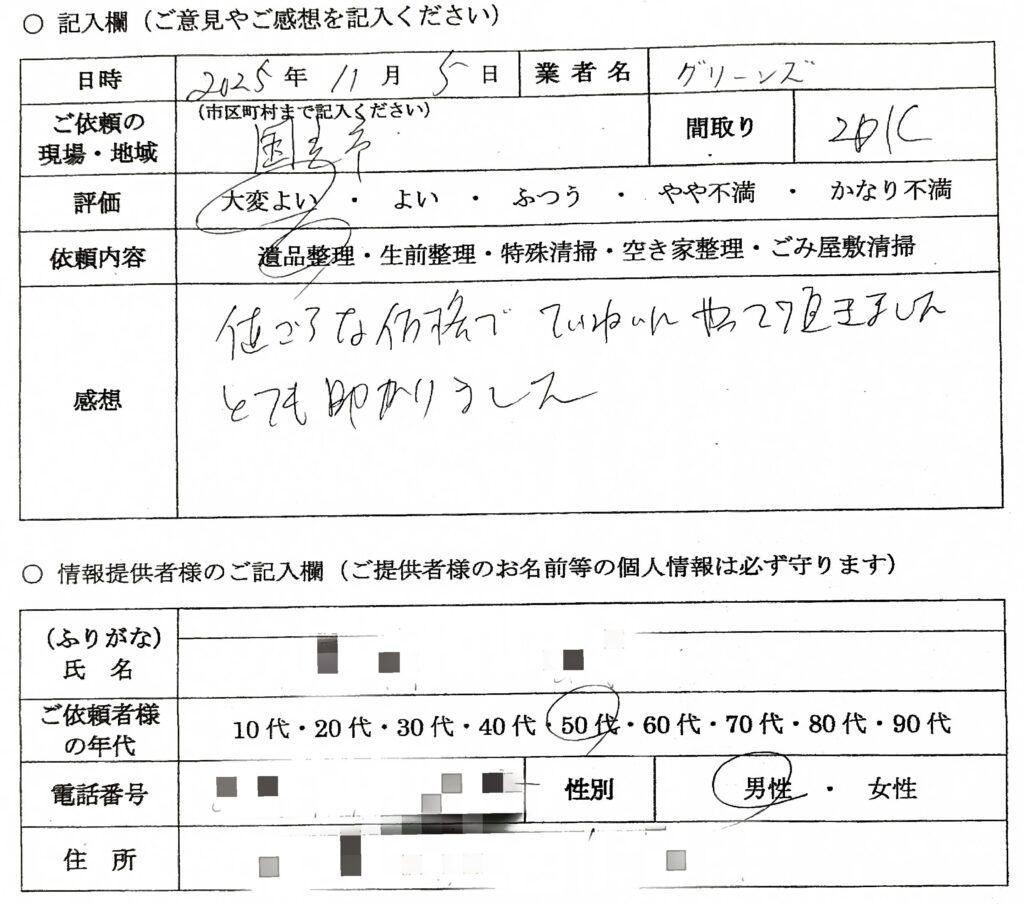 ○ 記入欄（ご意見やご感想を記入ください）
日時 2025年 11月 5日 業者名 グリーンズ
ご依頼の現場・地域 （市区町村まで記入ください） 国立市 間取り 2DK
評価 大変よい ・ よい ・ ふつう ・ やや不満 ・ かなり不満
依頼内容 遺品整理・生前整理・特殊清掃・空き家整理・ごみ屋敷清掃
感想 値ごろな価格で ていねいに やって頂きました
とても助かりました
○ 情報提供者様のご記入欄（ご提供者様のお名前等の個人情報は必ず守ります）
（ふりがな）
氏 名
ご依頼者様の年代 10代・20代・30代・40代・50代・60代・70代・80代・90代
電話番号 性別 男性 ・ 女性
住 所